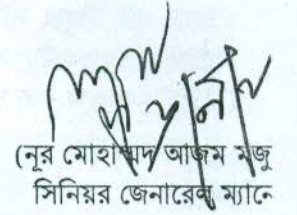 (নূর মোহাম্মদ আজম মজু
সিনিয়র জেনারেল ম্যানে